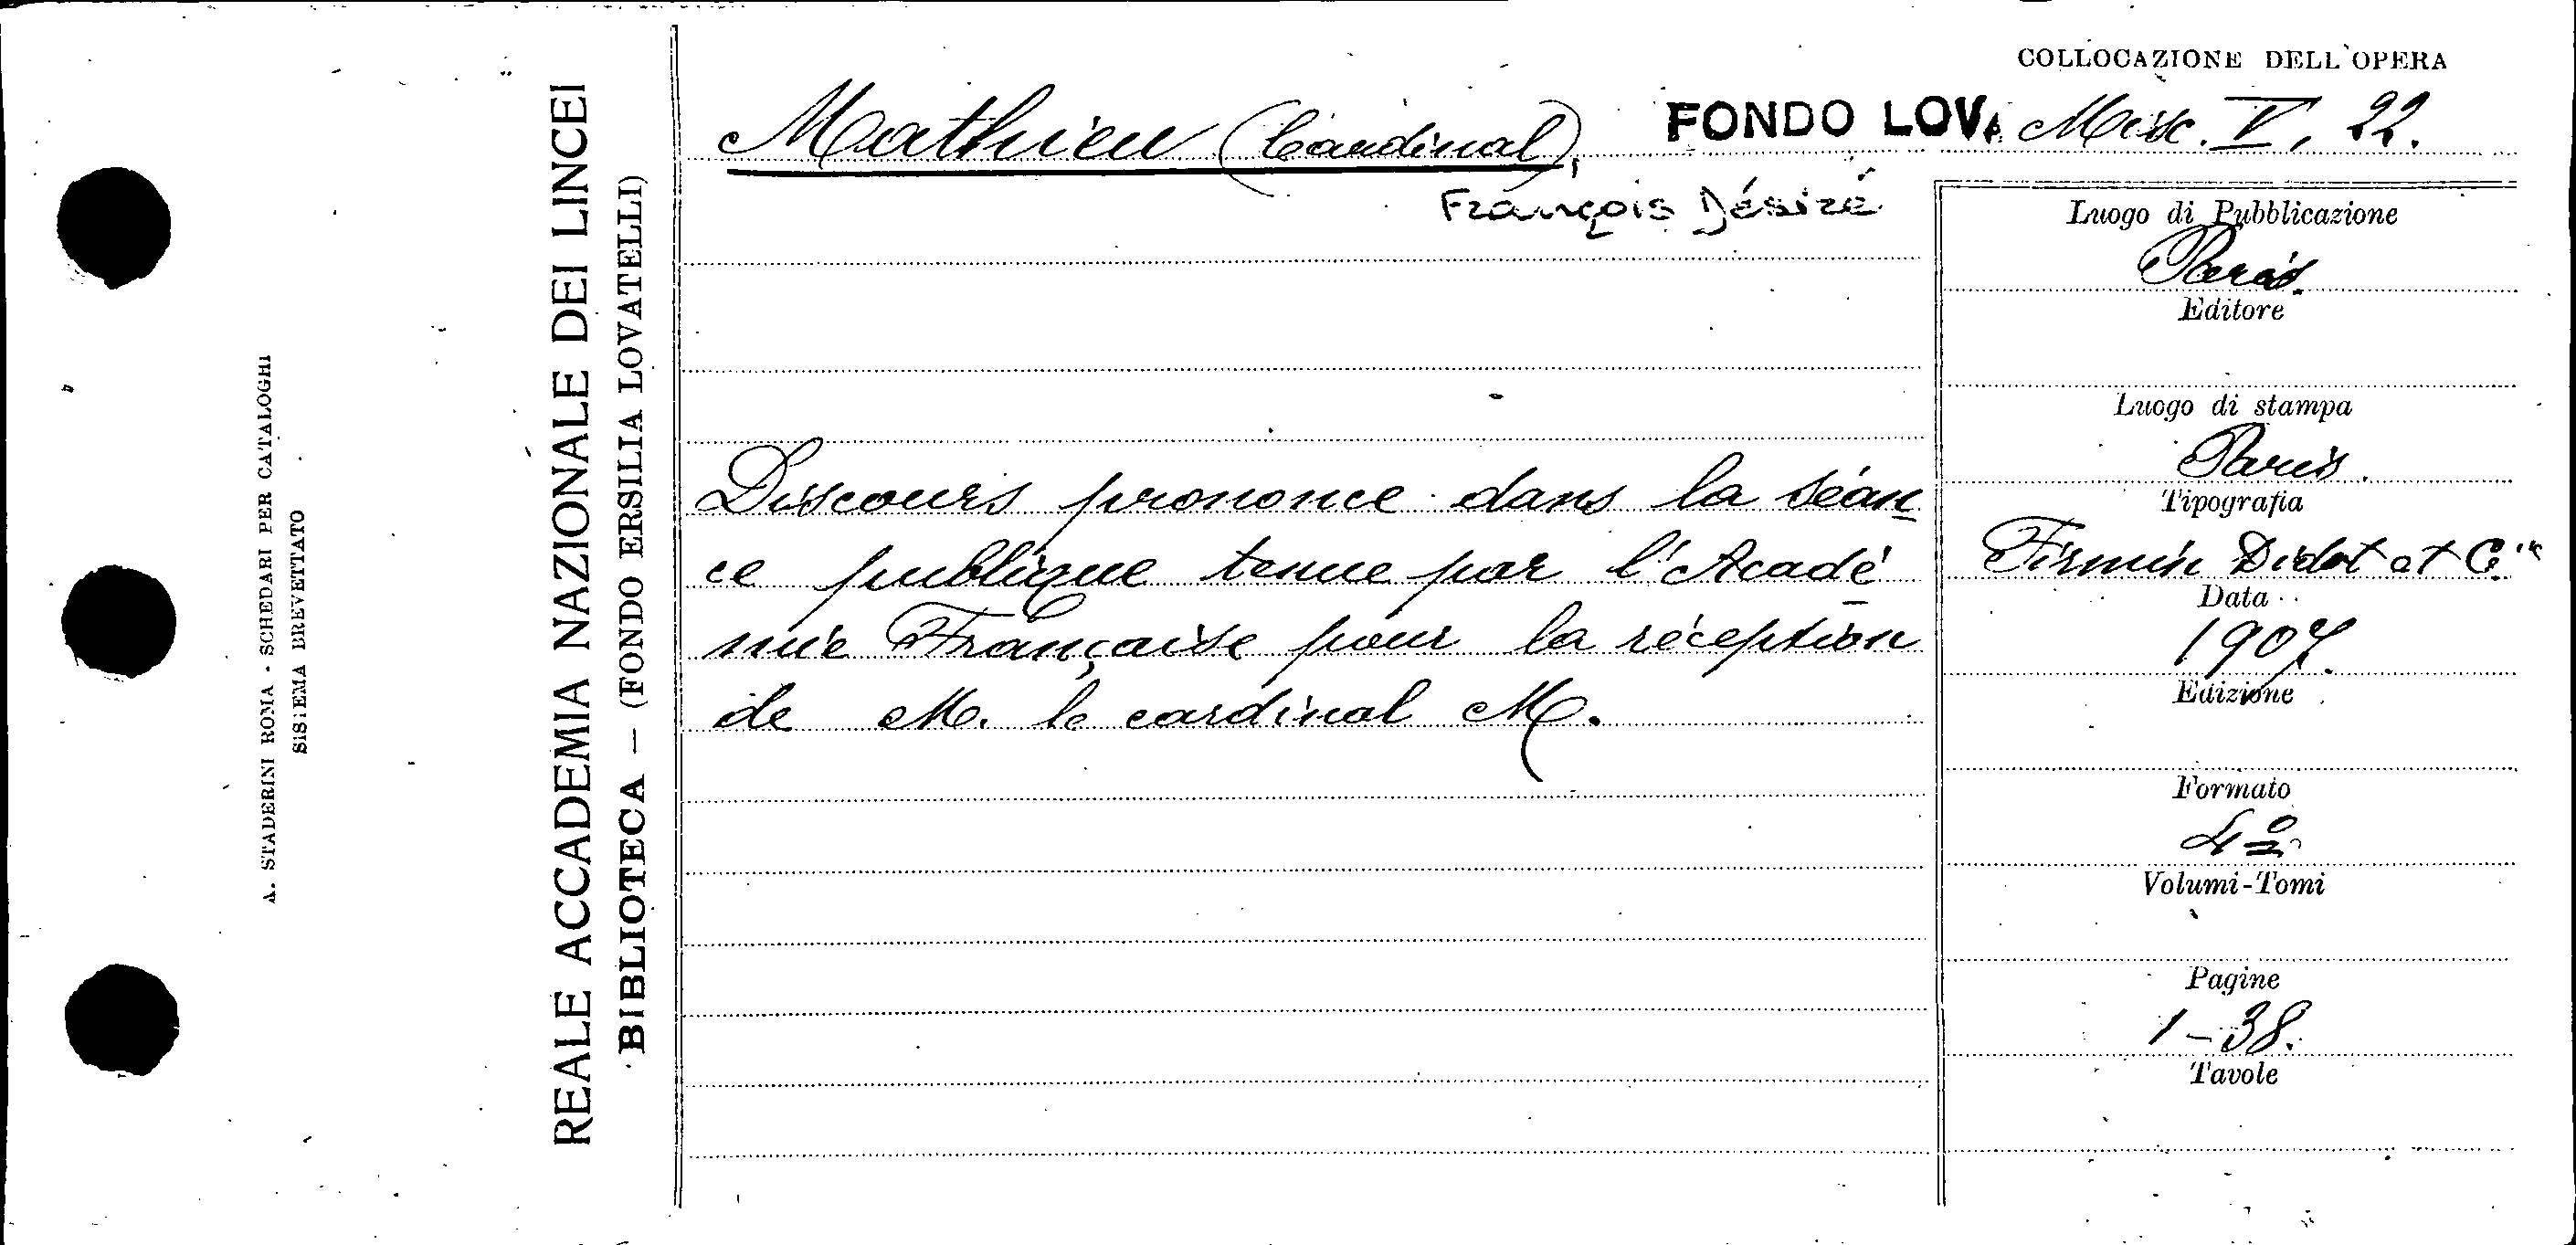 COLLOCAZIONE DELL'OPERA
Mathieu (Cardinal), FONDO LOV. Misc. V, 22.
François Désiré
Discours prononce dans la séan
ce publique tenue par l'Acadé
mie Française pour la réception
de M. le cardinal M.
Luogo di Pubblicazione
Paris.
Editore
Luogo di stampa
Paris.
Tipografia
Firmin Didot et C.ie
Data
1907.
Edizione
Formato
4º
Volumi-Tomi
Pagine
1-38.
Tavole
REALE ACCADEMIA NAZIONALE DEI LINCEI
BIBLIOTECA — (FONDO ERSILIA LOVATELLI)
A. STADERINI ROMA - SCHEDARI PER CATALOGHI
SISTEMA BREVETTATO